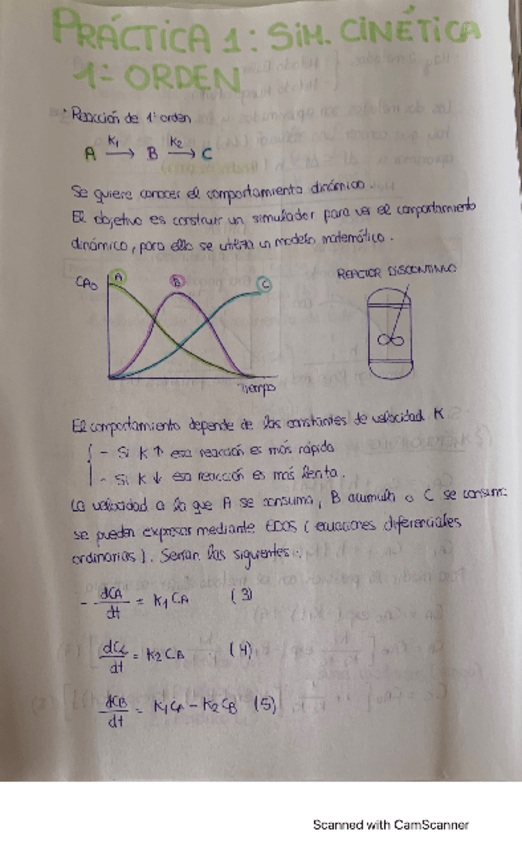 PRÁCTICA 1: SIM. CINÉTICA
1º ORDEN
· Reacción de 1º orden
A K1→ B K2→ C
Se quiere conocer el comportamiento dinámico.
El objetivo es construir un simulador para ver el comportamiento
dinámico, para ello se utiliza un modelo matemático.
CA0 A B C
REACTOR DISCONTINUO
Tiempo
El comportamiento depende de las constantes de velocidad K
- Si K ↑ esa reacción es más rápida
- Si K ↓ esa reacción es más lenta.
La velocidad a la que A se consuma, B acumula o C se consuma
se pueden expresar mediante EDOS (ecuaciones diferenciales
ordinarias). Serían las siguientes:
- dCA/dt = K1 CA (3)
dCc/dt = K2 CB (4)
dCB/dt = K1 CA - K2 CB (5)
Scanned with CamScanner